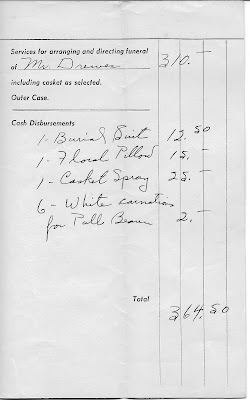 Services for arranging and directing funeral
of Mr. Drewes 310. —
including casket as selected.
Outer Case.
Cash Disbursements
1 - Burial Suit 12.50
1 - Floral Pillow 15. —
1 - Casket Spray 25. —
6 - White carnations
for Pall Bearer 2. —
Total
364.50